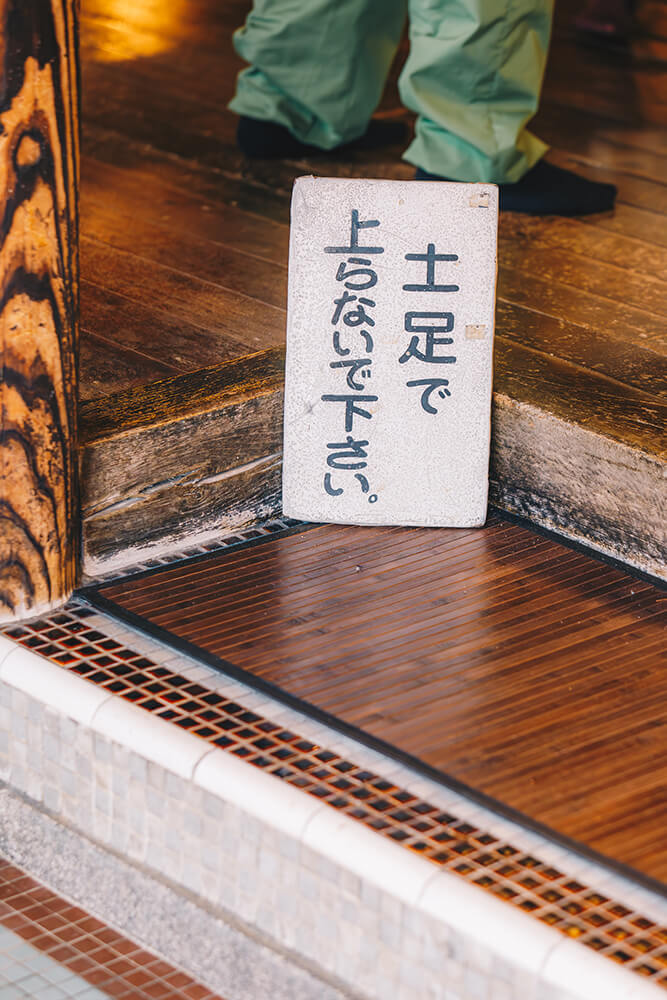 土足で
上らないで下さい。